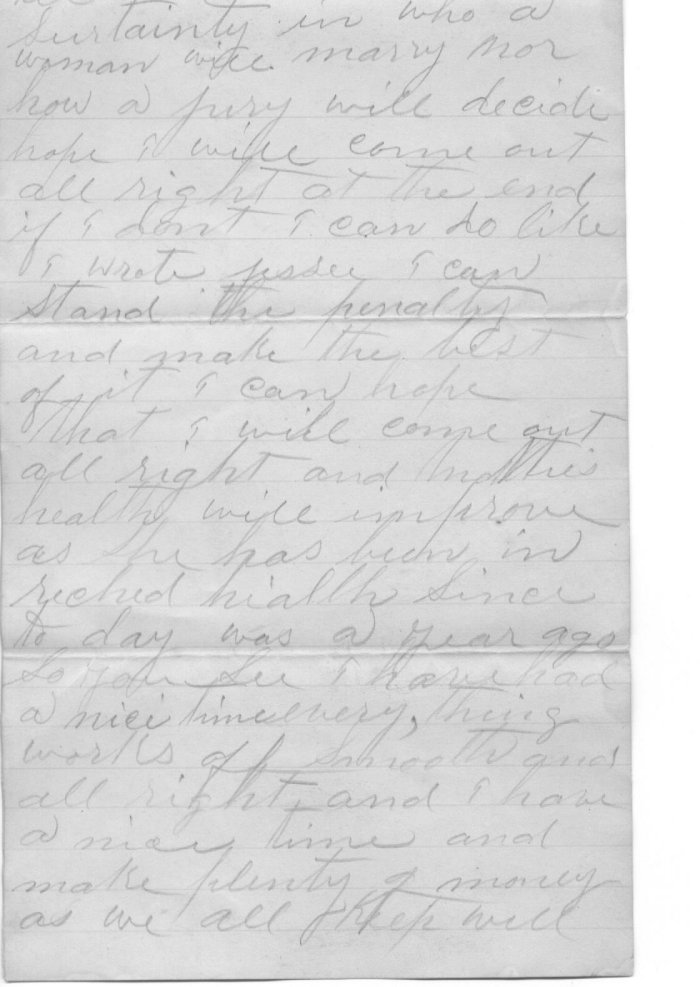 Surtainty in who a
woman will marry nor
how a jury will decide
hope I will come out
all right at the end
if I dont I can do like
I wrote jessee I can
stand the penalty
and make the best
of it I can hope
that I will come out
all right and
health will improve
as she has been in
reched hialth Since
to day was a year ago
So you See I have had
a nice time every, thing
works of smooth and
all right, and I have
a nice time and
make plenty of money
as we all keep well